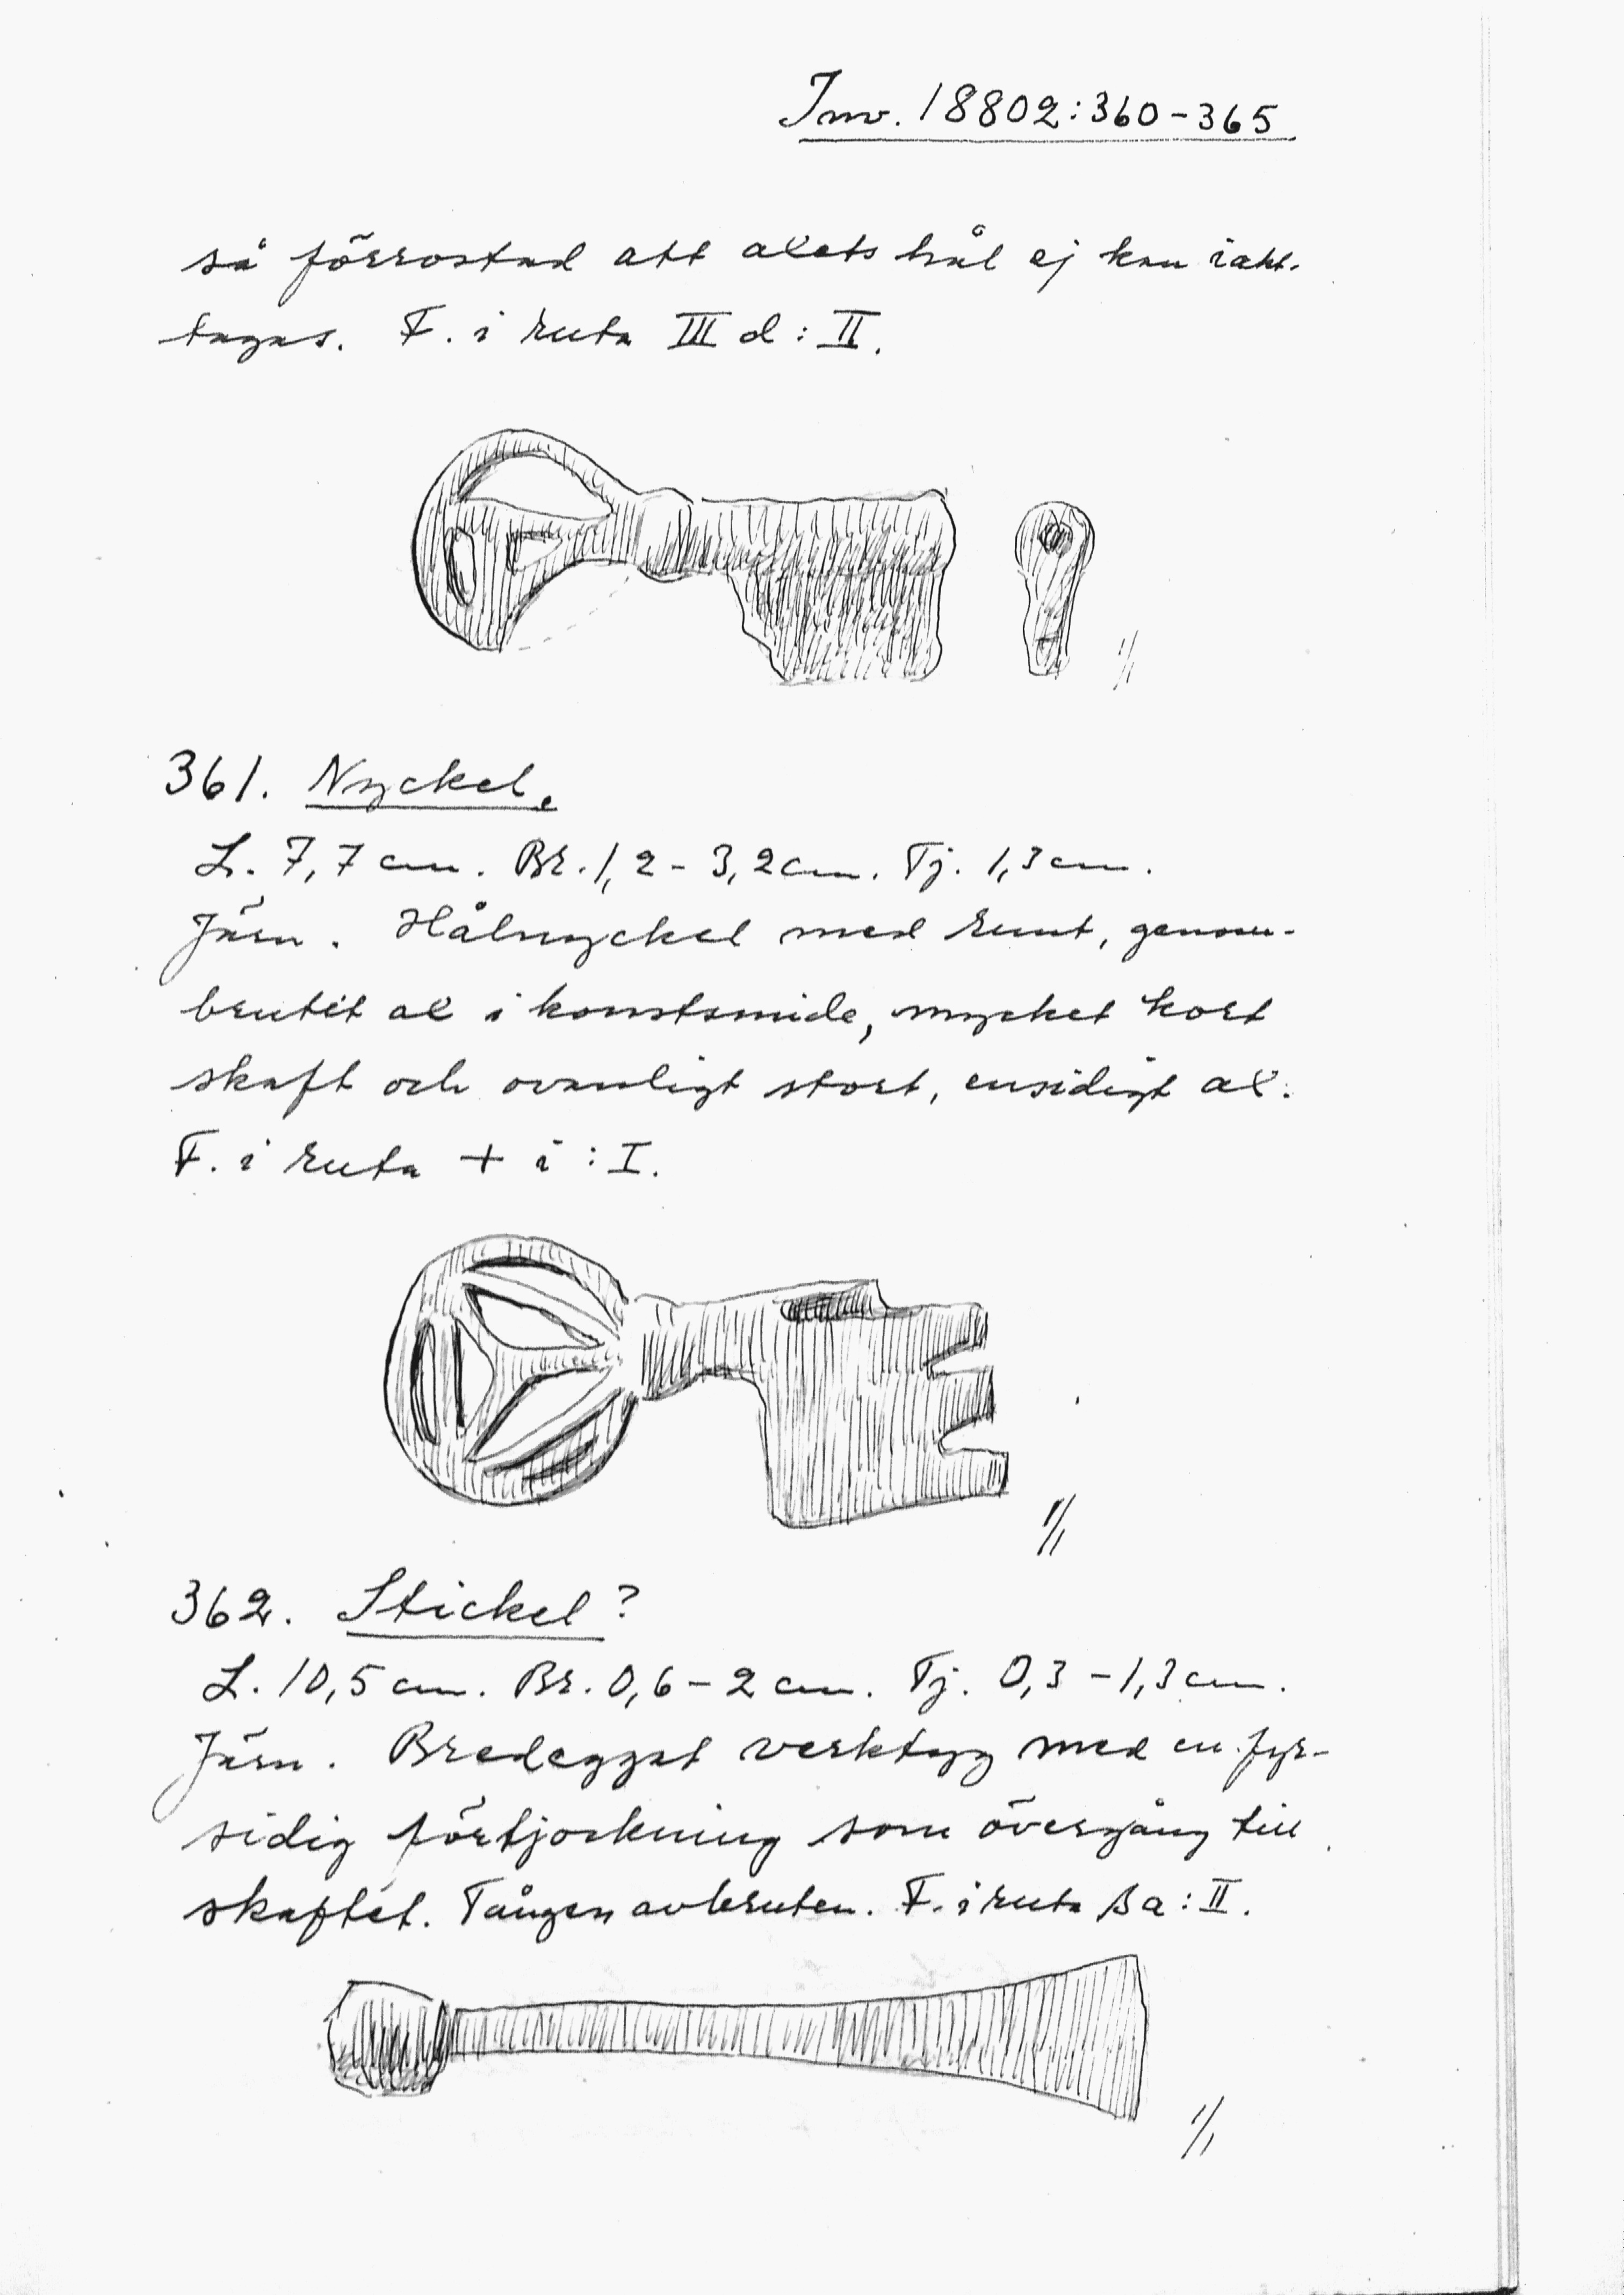 Inv. 18802:360-365
så förrostad att axets hål ej kan iakt-
tagas. F. i ruta III d : II.
1/1
361. Nyckel.
L. 7,7 cm. Br. 1,2 - 3,2 cm. Tj. 1,3 cm.
Järn. Hålnyckel med runt, genom-
brutet ax i konstsmide, mycket kort
skaft och ovanligt stort, ensidigt ax.
F. i ruta + i : I.
1/1
362. Stickel?
L. 10,5 cm. Br. 0,6 - 2 cm. Tj. 0,3 - 1,3 cm.
Järn. Bredeggat verktyg med en fyr-
sidig förtjockning som övergång till
skaftet. Tången avbruten. F. i ruta βa : II.
1/1